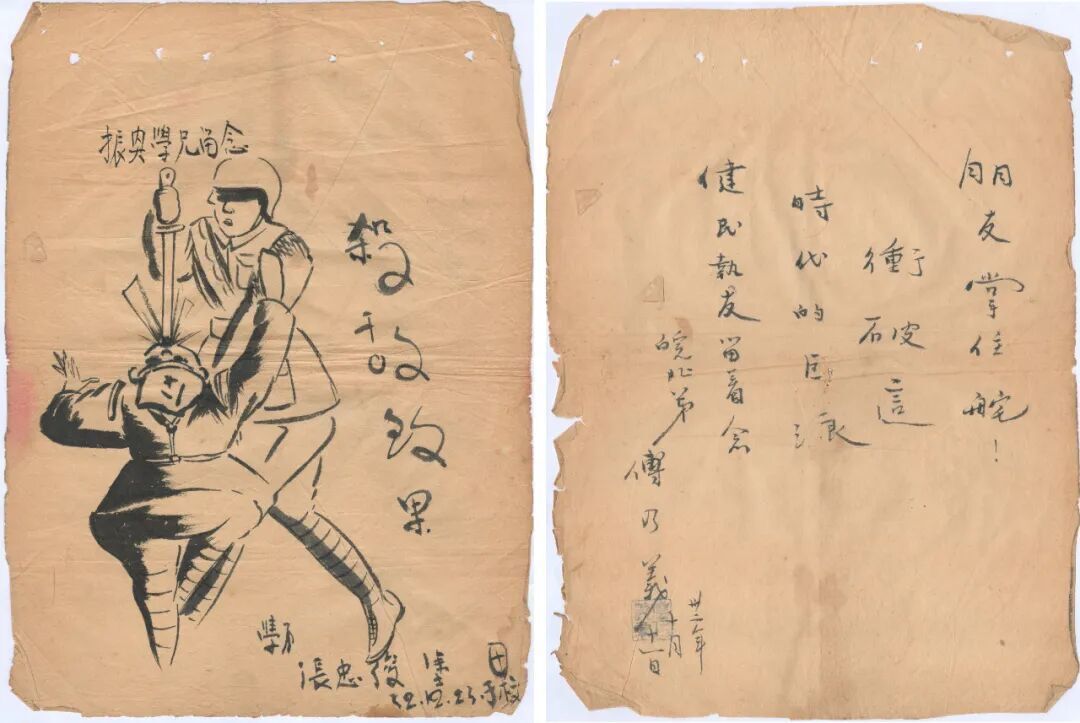 振學兄留念
殺敵致果
學弟
張忠俊塗
32.12.23.于校
朋友掌住舵！
衝破這
時代的巨浪
健民執友留着念
皖北弟
傅乃義
卅二年
十月
十一日